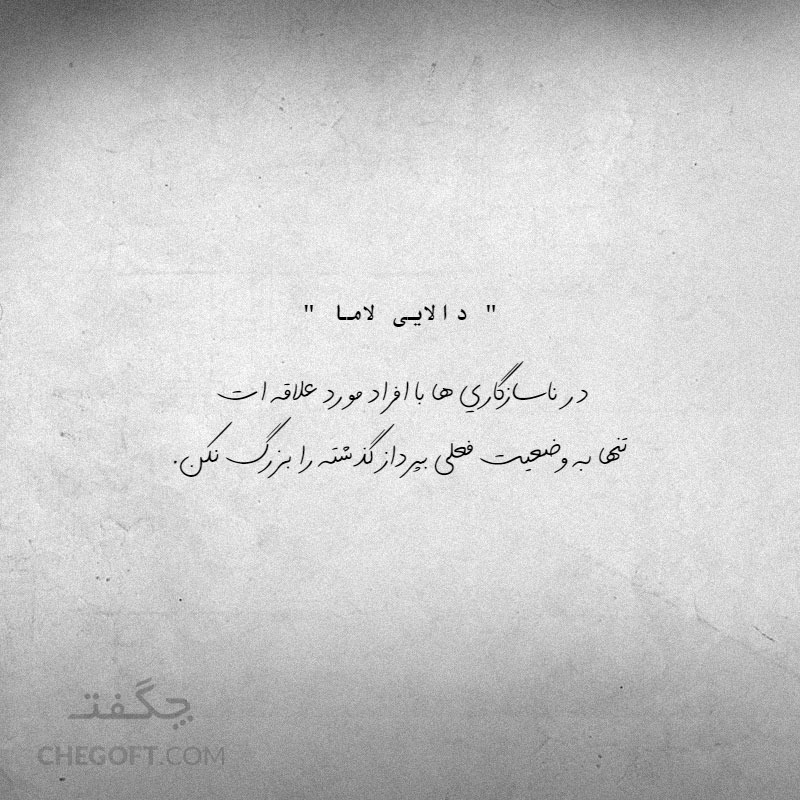 " دالایی لاما "
در ناسازگاري ها با افراد مورد علاقه ات
تنها به وضعیت فعلی بپرداز گذشته را بزرگ نکن.
چگفت
CHEGOFT.COM